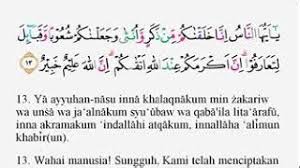 يٰٓاَيُّهَا النَّاسُ اِنَّا خَلَقْنٰكُمْ مِّنْ ذَكَرٍ وَّاُنْثٰى وَجَعَلْنٰكُمْ شُعُوْبًا وَّقَبَاۤىِٕلَ
لِتَعَارَفُوْا ۚ اِنَّ اَكْرَمَكُمْ عِنْدَ اللّٰهِ اَتْقٰىكُمْ ۗ اِنَّ اللّٰهَ عَلِيْمٌ خَبِيْرٌ ١٣
13. Yā ayyuhan-nāsu innā khalaqnākum min żakariw
wa unṡā wa ja'alnākum syu'ūbaw wa qabā'ila lita'ārafū,
inna akramakum 'indallāhi atqākum, innallāha 'alīmun
khabīr(un).
13. Wahai manusia! Sungguh, Kami telah menciptakan